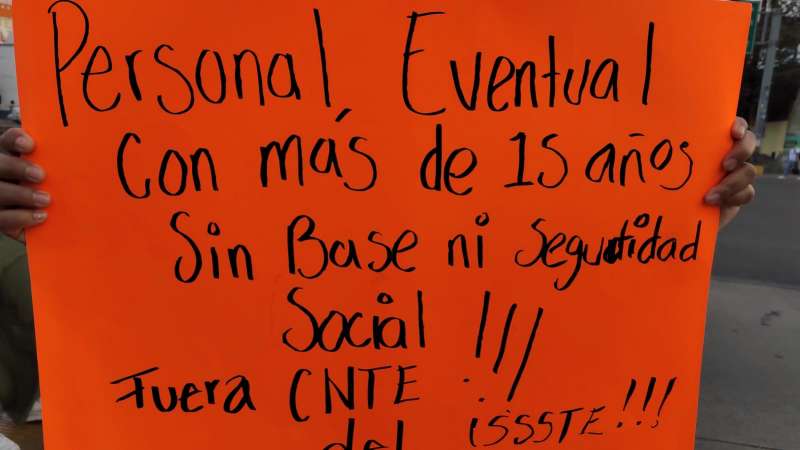 Personal Eventual
Con más de 15 años
Sin Base ni Seguridad
Social !!!
Fuera CNTE
del ISSSTE!!!